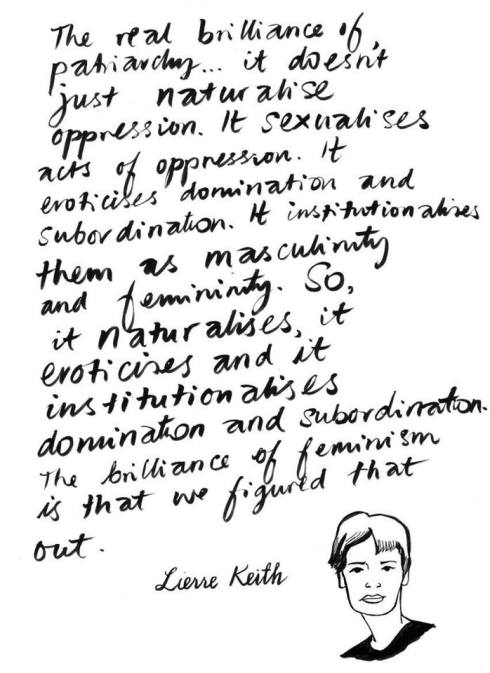 The real brilliance of
patriarchy... it doesn't
just naturalise
oppression. It sexualises
acts of oppression. It
eroticises domination and
subordination. It institutionalises
them as masculinity
and femininity. So,
it naturalises, it
eroticises and it
institutionalises
domination and subordination.
The brilliance of feminism
is that we figured that
out.
Lierre Keith